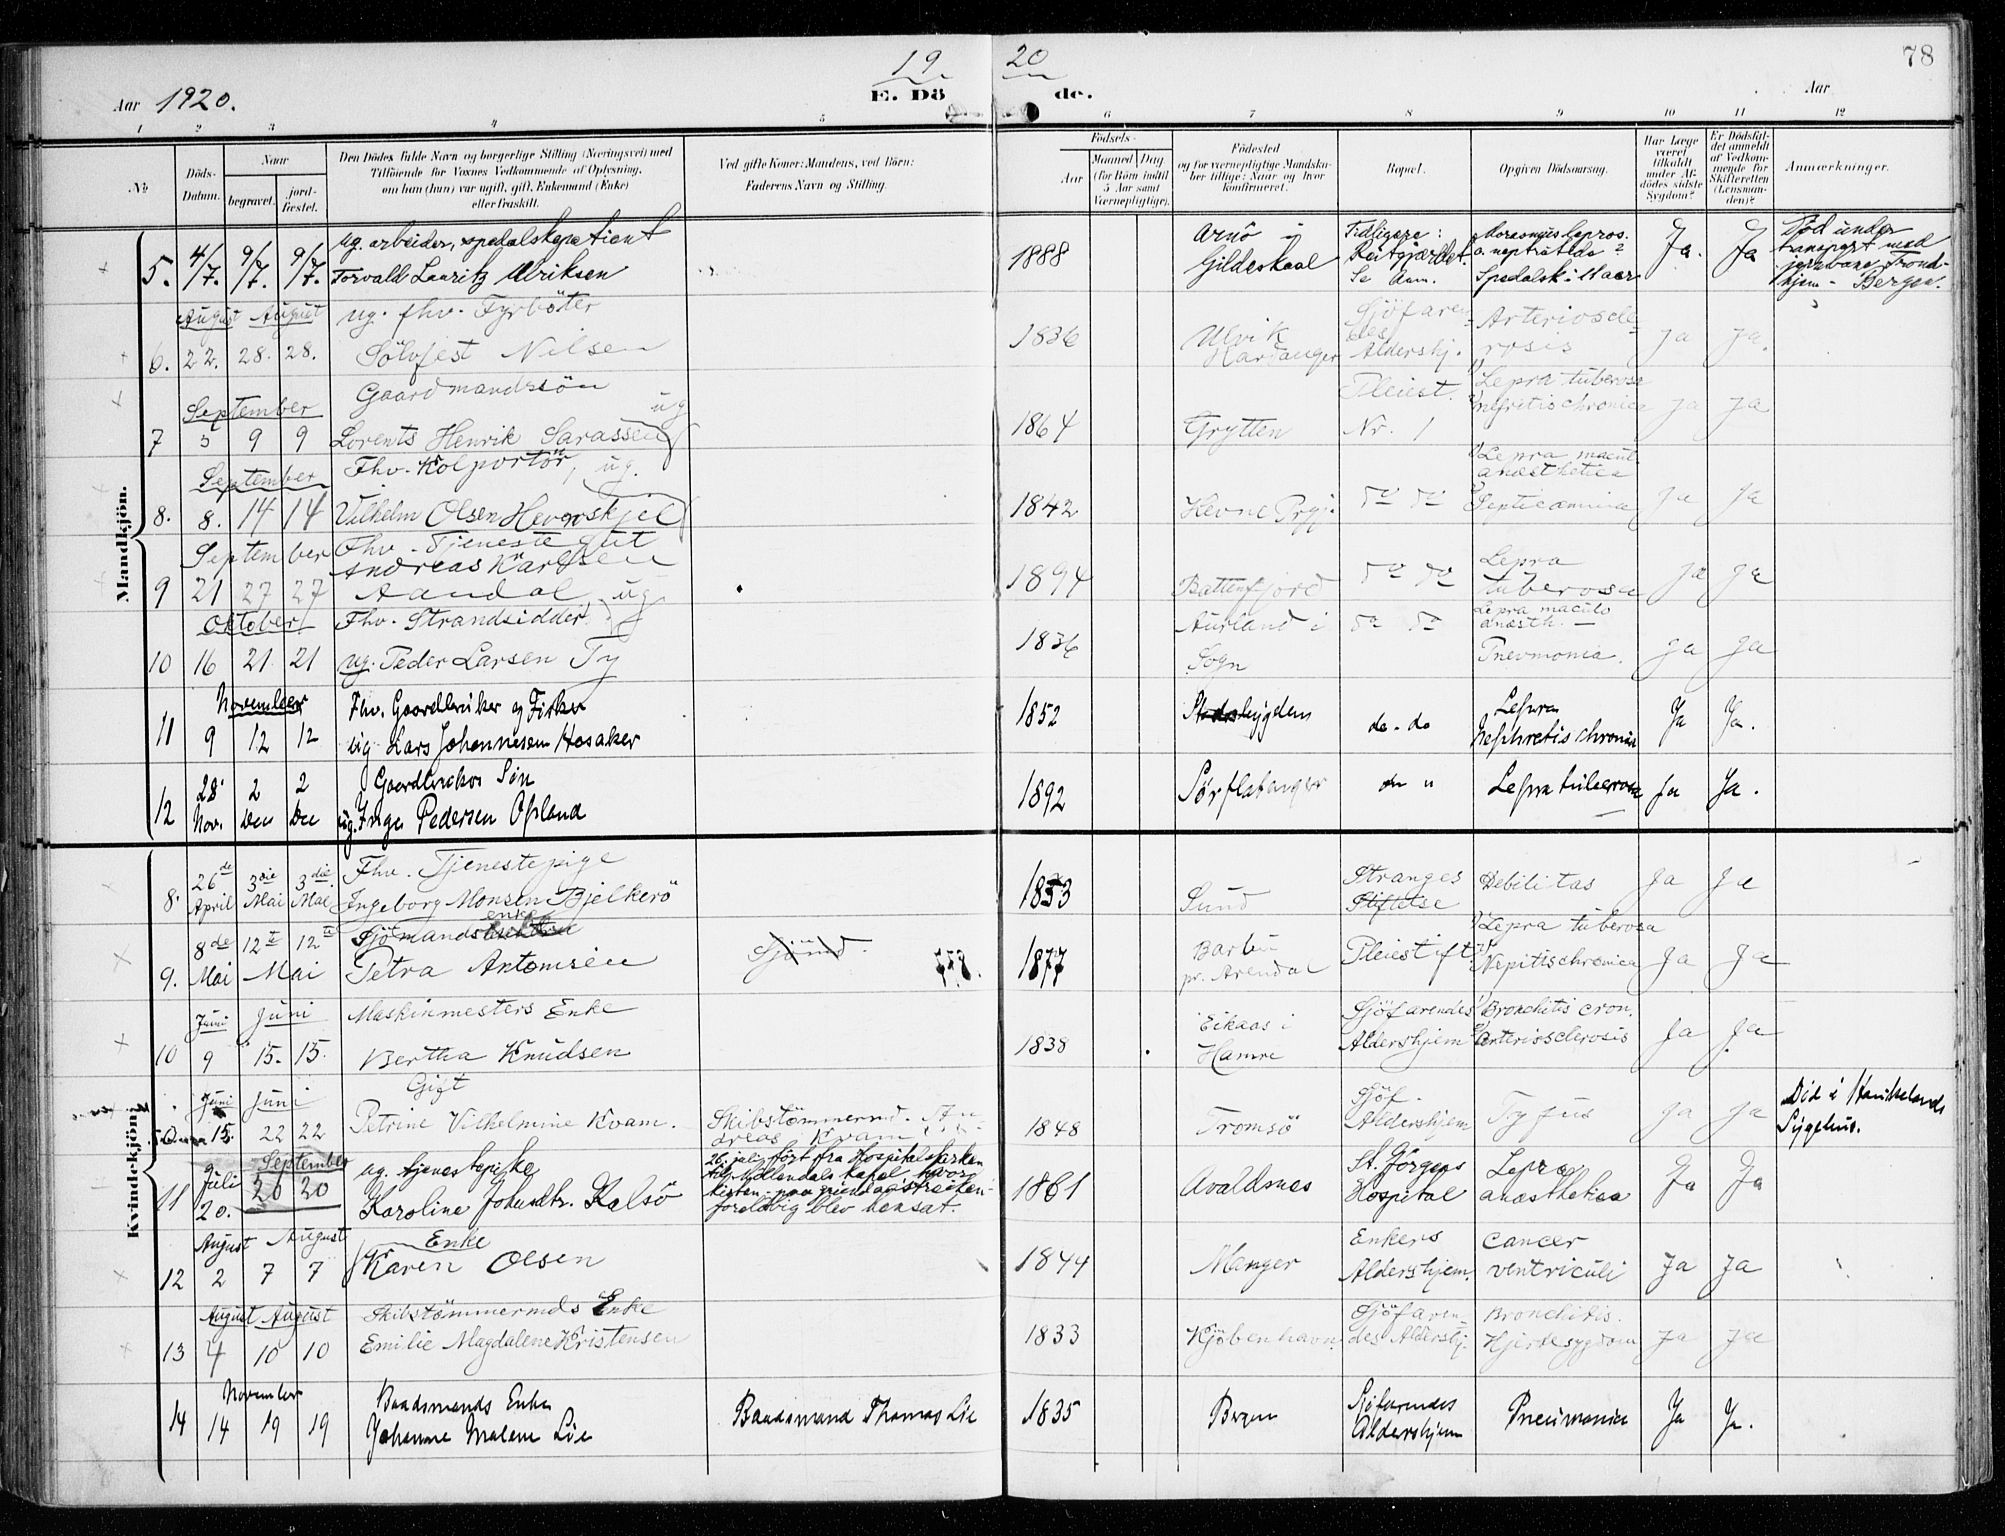 19 20
78
Aar 1920.
E. Döde.
Aar
1 2 3 4 5 6 7 8 9 10 11 12
№
Döds-Datum.
Naar
begravet.
jordfæstet.
Den Dödes fulde Navn og borgerlige Stilling (Næringsvei) med Tilföiende for Voxnes Vedkommende af Oplysning, om han (hun) var ugift, gift, Enkemand (Enke) eller fraskilt.
Ved gifte Koner: Mandens, ved Börn: Faderens Navn og Stilling.
Födsels-
Aar
Maaned Dag
(for Börn indtil 5 Aar samt Værnepligtige).
Födested og for værnepligtige Mandskaber tillige: Naar og hvor konfirmeret.
Bopæl.
Opgiven Dödsaarsag.
Har Læge været tilkaldt under Afdödes sidste Sygdom?
Er Dödsfaldet anmeldt af Vedkommende for Skifteretten (Lensmanden)?
Anmærkninger.
Mandkjön.
5. 4/7. 9/7. 9/7. ug. arbeider, spedalskpatient
Torvald Lauritz Ulriksen
1888 Arnö i Gildeskaal
Tidligere: Reitgjærdet.
Spedalsk i
Ja. Ja
Död under transport med jernbane Trondhjem - Bergen.
August August
6. 22. 28. 28. ug. fhv. Fyrböter
Sölvfest Nilsen
1836 Ulvik Hardanger
Sjöfarendes Aldershj.
Arteriosclerosis
Ja Ja.
September
7 3 9 9 Gaardmandssön
Lorents Henrik Sarassen ug
1864 Grytten
Pleiest. Nr. 1
1) Lepra tuberosa
2) nefritis chronica
Ja Ja
September
8. 8. 14 14 Fhv. Kolportör, ug.
Vilhelm Olsen Hevnskjel
1842 Hevne Prgj.
do do
1) Lepra macul. anæsthetica
2) Septicæmia
Ja Ja
September
9 21 27 27 Fhv. Tjenestegut
Andreas Karlsen Aandal ug
1894 Battenfjord
do do
Lepra tuberosa
Ja Ja
Oktober
10 16 21 21 Fhv. Strandsidder
ug. Peder Larsen Ty
1836 Aurland i Sogn
do do
Lepra maculo anæsth. —
Pnevmonia.
Ja Ja
November
11 9 12 12 Fhv. Gaardbruker og Fisker
ug. Lars Johannesen Hosaker
1852 Stadsbygden
do. do
Lepra
Nephretis chronic
Ja Ja.
12 28 Nov. 2 Dec 2 Dec Gaardbrukers Sön
ug. Inge Pedersen Opland
1892 Sörflatanger
do "
Lepra tuberosa
Ja Ja.
Kvindekjön.
8. 26de April 3die Mai 3die Mai Fhv. Tjenestepige
Ingeborg Monsen Bjelkerö
1853 Sund
Stranges Stiftelse
Debilitas
Ja Ja
9. 8de Mai 12te 12te Mai Sjömandsenke
Petra Antonisen
Sjömd.
778. 1877 Barbu pr. Arendal
Pleiestift.
1) Lepra tuberosa
2) Nepitis chronica
Ja Ja
Juni Juni
10 9 15. 15. Maskinmesters Enke
Bertha Knudsen
1838 Eikaas i Hamre
Sjöfarendes Aldershjem
1) Bronchitis cron.
2) Arteriosclerosis
Ja Ja
Juni Juni
15. 22 22 Gift
Petrine Vilhelmine Kvam.
Skibstömmermd. Andreas Kvam
1848 Tromsö
Sjöf. Aldershjem
Tyfus
Ja Ja
Död i Haukelands Sygehus.
11 Juli 20. September 20 20 ug. tjenestepike
Karoline Johansdtr. Kalsö
26. juli fört fra Hospitalskirken til Möllendals kapel hvor kisten foreløbig blev hensat.
1861 Avaldsnes
St. Jörgens Hospital
Lepra anæsthetica
Ja Ja
August August
12 2 7 7 Enke
Karen Olsen
1844 Manger
Enkers Aldershjem.
Cancer ventriculi
Ja Ja
August August
13 4 10 10 Skibstömmermds Enke
Emilie Magdalene Kristensen
1833 Kjöbenhavn.
Sjöfarendes Aldershj.
Bronchitis. Hjertesygdom
Ja Ja
November
14 14 19 19 Baadsmands Enke
Johanne Malene Lie
Baadsmand Thomas Lie
1835 Bergen
Sjöfarendes Aldershjem
Pneumonia
Ja Ja.